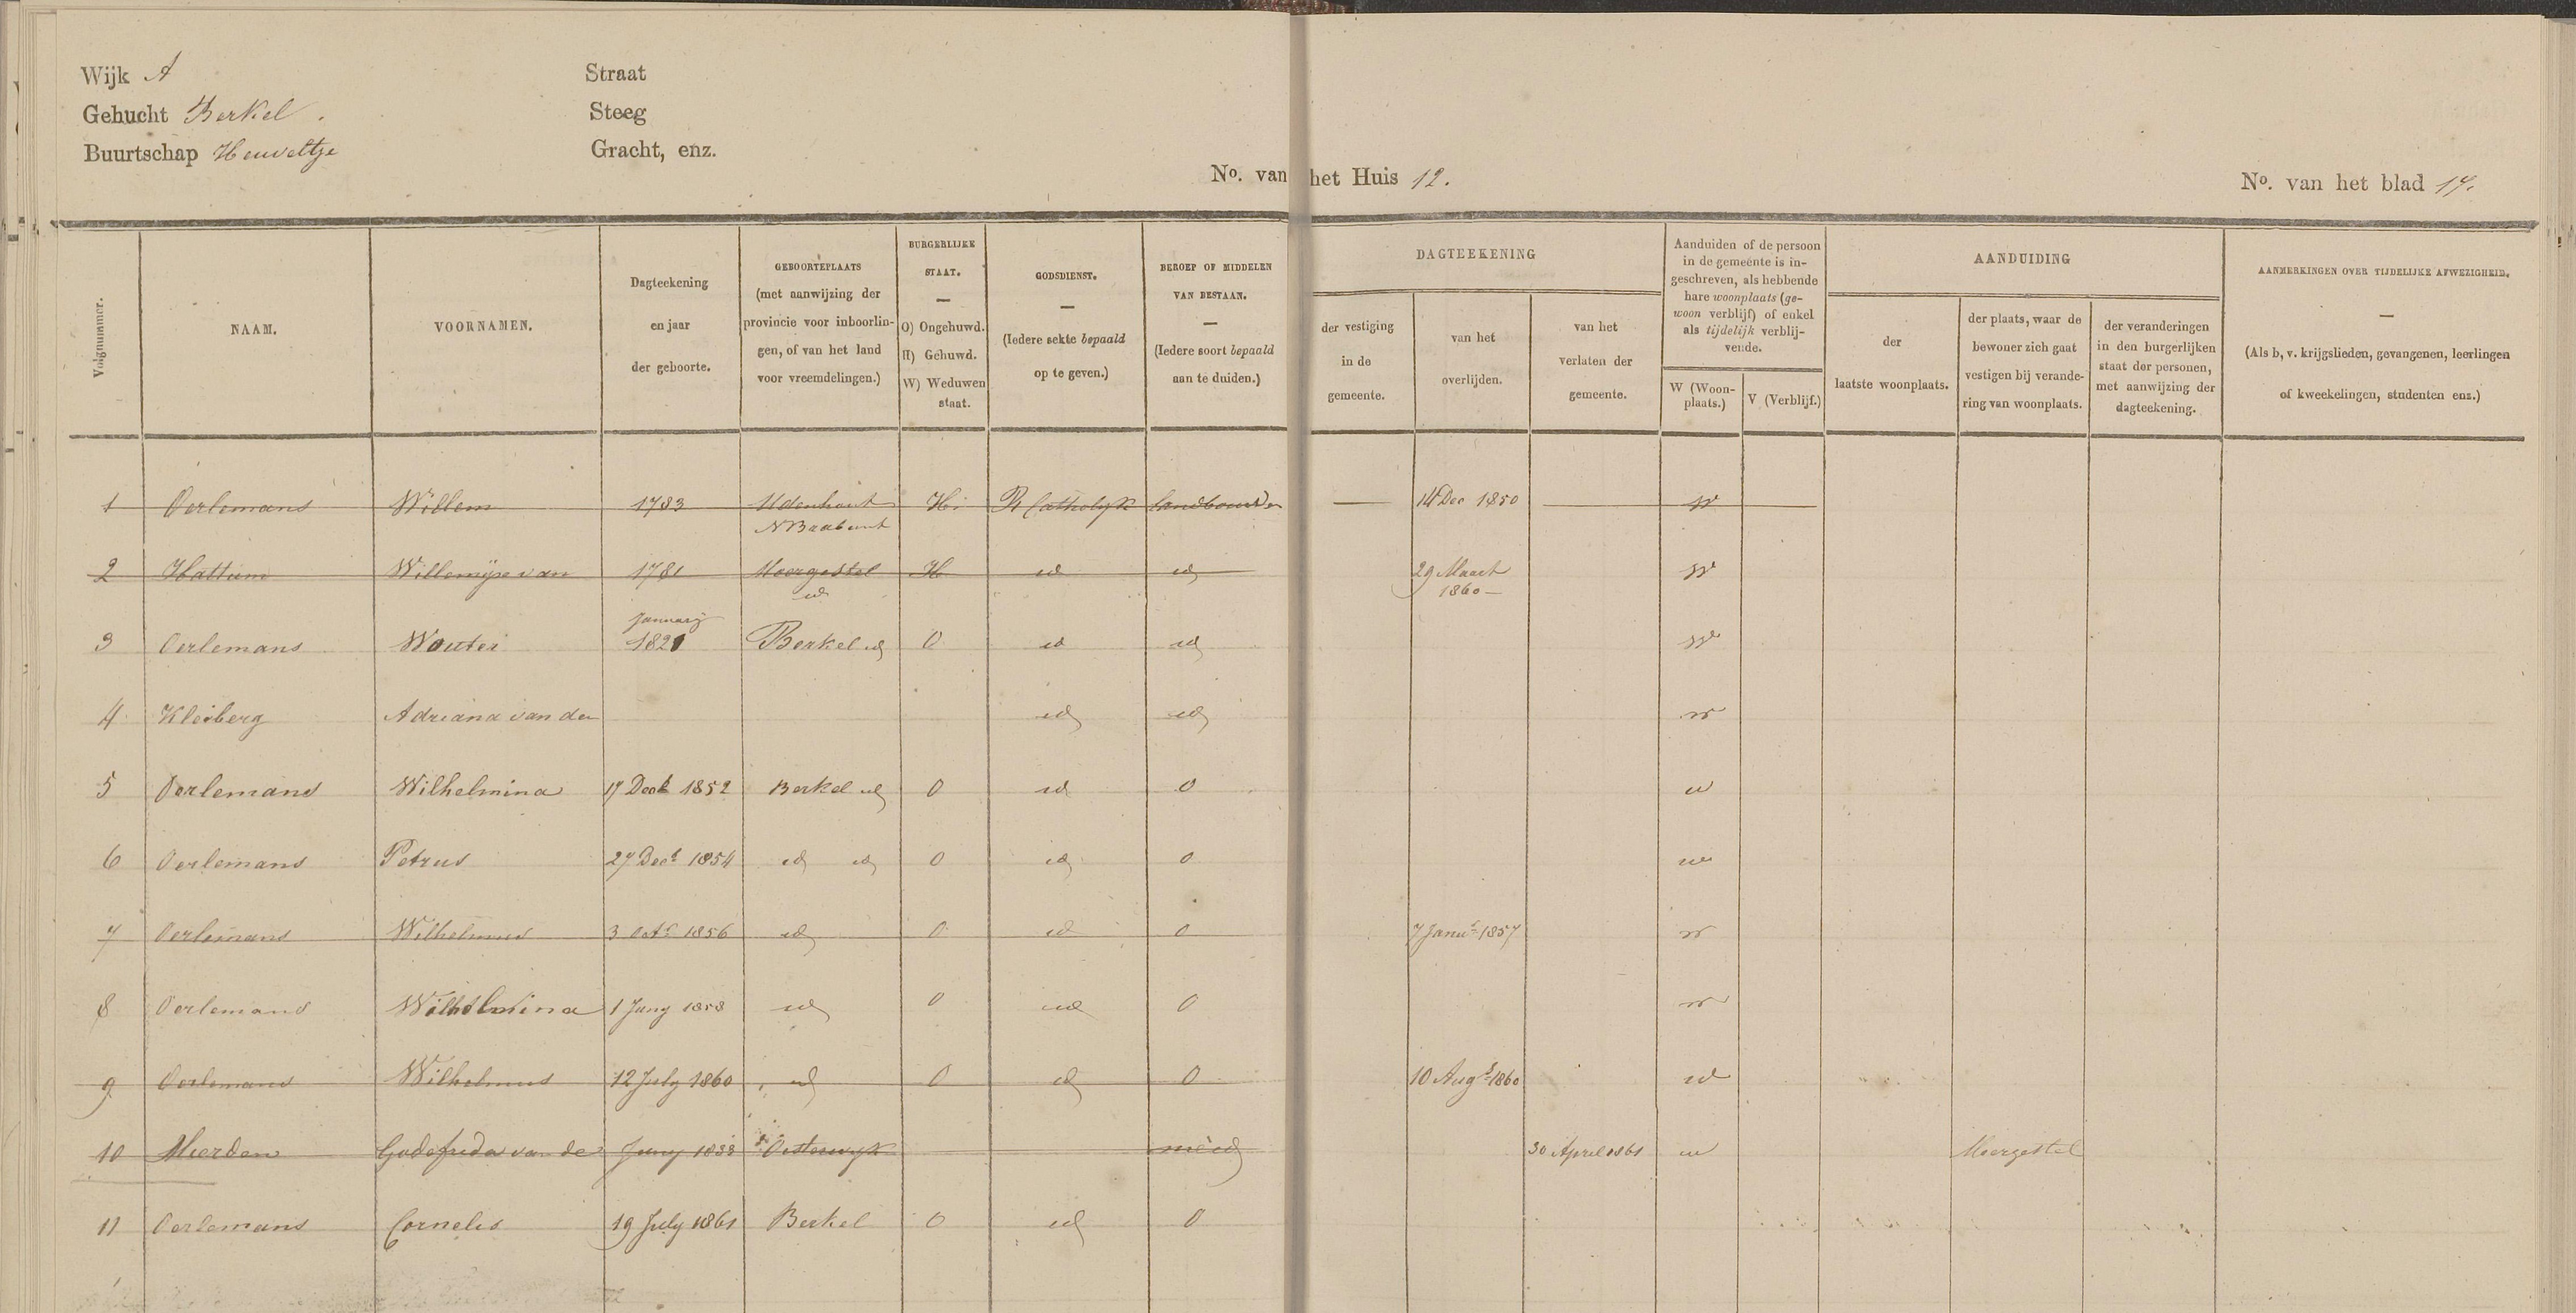 Wijk A
Gehucht Berkel.
Buurtschap Heuveltje
Straat
Steeg
Gracht, enz.
No. van het Huis 12.
No. van het blad 17.
Volgnummer.
NAAM.
VOORNAMEN.
Dagteekening
en jaar
der geboorte.
GEBOORTEPLAATS
(met aanwijzing der
provincie voor inboorlin-
gen, of van het land
voor vreemdelingen.)
BURGERLIJKE
STAAT.
—
O) Ongehuwd.
H) Gehuwd.
W) Weduwen
staat.
GODSDIENST.
—
(Iedere sekte bepaald
op te geven.)
BEROEP OF MIDDELEN
VAN BESTAAN.
—
(Iedere soort bepaald
aan te duiden.)
DAGTEEKENING
der vestiging
in de
gemeente.
van het
overlijden.
van het
verlaten der
gemeente.
Aanduiden of de persoon
in de gemeente is in-
geschreven, als hebbende
hare woonplaats (ge-
woon verblijf) of enkel
als tijdelijk verblij-
vende.
W (Woon-
plaats.)
V (Verblijf.)
AANDUIDING
der
laatste woonplaats.
der plaats, waar de
bewoner zich gaat
vestigen bij verande-
ring van woonplaats.
der veranderingen
in den burgerlijken
staat der personen,
met aanwijzing der
dagteekening.
AANMERKINGEN OVER TIJDELIJKE AFWEZIGHEID.
—
(Als b, v. krijgslieden, gevangenen, leerlingen
of kweekelingen, studenten enz.)
1 Oerlemans Willem 1783 Udenhout H. R Catholyk landbouwer 14 Dec 1850 w
N Braabant
2 Hattum Willemijn van 1781 Moergestel H id id 29 Maart w
id 1860 —
januarij
3 Oerlemans Wouter 1821 Berkel id O id id w
4 Kleiberg Adriana van den id id w
5 Oerlemans Wilhelmina 17 Decb 1852 Berkel id O id O w
6 Oerlemans Petrus 27 Decb 1854 id id O id O w
7 Oerlemans Wilhelmus 3 Octr 1856 id O id O 7 Janur 1857 w
8 Oerlemans Wilhelmina 1 Juny 1858 id O id O w
9 Oerlemans Wilhelmus 12 July 1860 id O id O 10 Augs 1860 w
10 Mierden Godefrida van de Juny 1838 Oisterwijk meid 30 April 1861 w Moergestel
11 Oerlemans Cornelis 19 July 1861 Berkel O id O